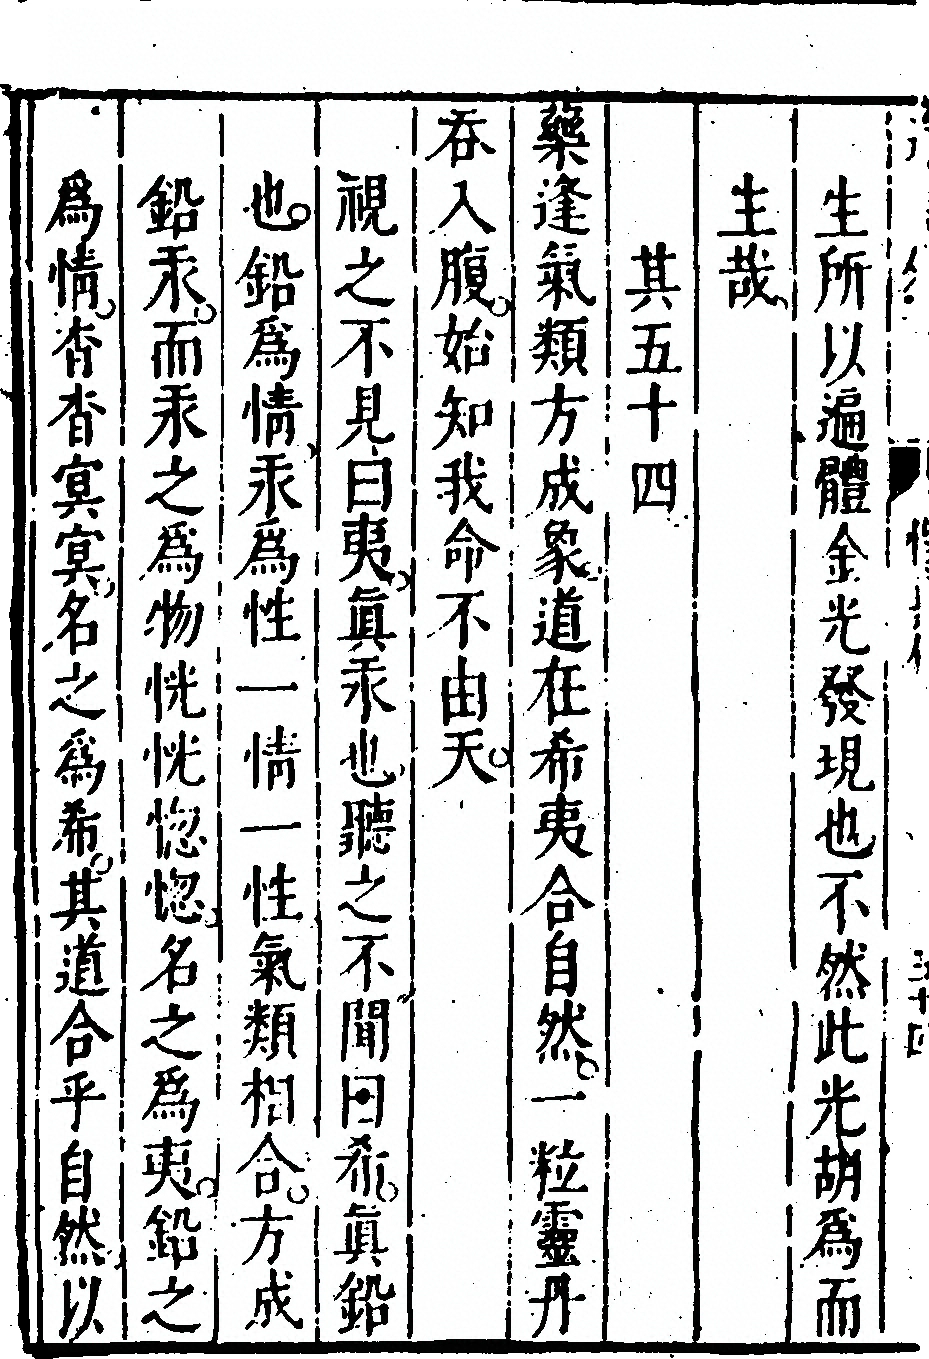 生所以遍體金光發現也不然此光胡爲而
生哉
其五十四
藥逢氣類方成象道在希夷合自然一粒靈丹
吞入腹始知我命不由天
視之不見曰夷眞汞也聽之不聞曰希眞鉛
也鉛爲情汞爲性一情一性氣類相合方成
鉛汞而汞之爲物恍恍惚惚名之爲夷鉛之
爲情杳杳冥冥名之爲希其道合乎自然以